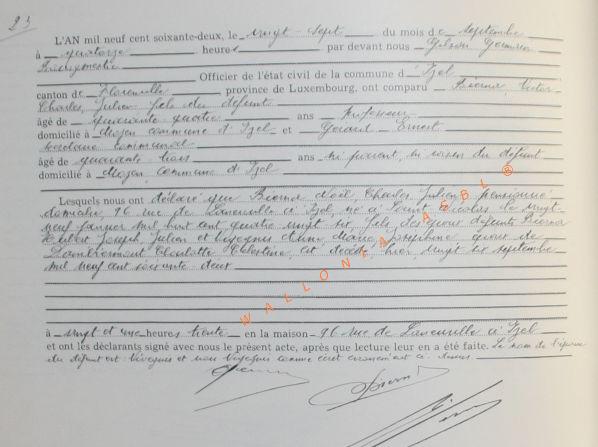 25
L'AN mil neuf cent soixante-deux, le vingt-sept du mois de septembre
à quatorze heures par devant nous Gilson
Bourgmestre Officier de l'état civil de la commune d' Izel
canton de Florenville province de Luxembourg, ont comparu Biernot Victor
Charles, Julien fils du défunt
âgé de quarante quatre ans Professeur
domicilié à Moyen commune d'Izel et Gérard Ernest
secrétaire communal
âgé de quarante trois ans ni parent, ni voisin du défunt
domicilié à Moyen, commune d'Izel
Lesquels nous ont déclaré que Noël, Charles Julien, pensionné
domicilié, 96 rue de Laneuville à Izel, né à Saint Nicolas le vingt-
neuf mil huit cent quatre vingt six, fils des époux défunts
Hubert Joseph, Julien et Anne, Marie, Joséphine époux de
Charlotte Célestine, est décédé, hier vingt six septembre
mil neuf cent soixante deux
à vingt et une heures trente en la maison 96 rue de Laneuville à Izel
et ont les déclarants signé avec nous le présent acte, après que lecture leur en a été faite. Le nom de l'épouse
du défunt est et non comme écrit erronément ci-dessus.
WALLONIA ASBL ®